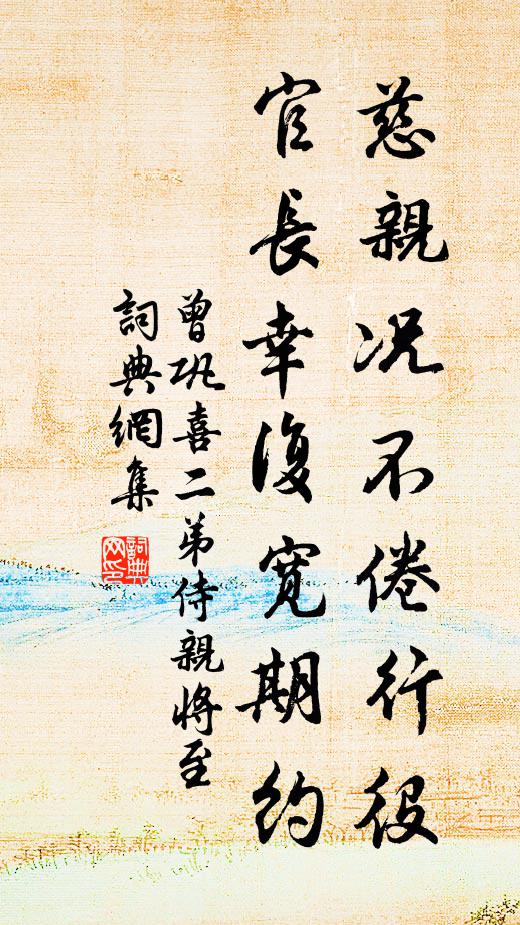 慈親况不倦行役
官長幸復寬期約
曾巩喜二弟侍親將至
詞典網集
詞典网印